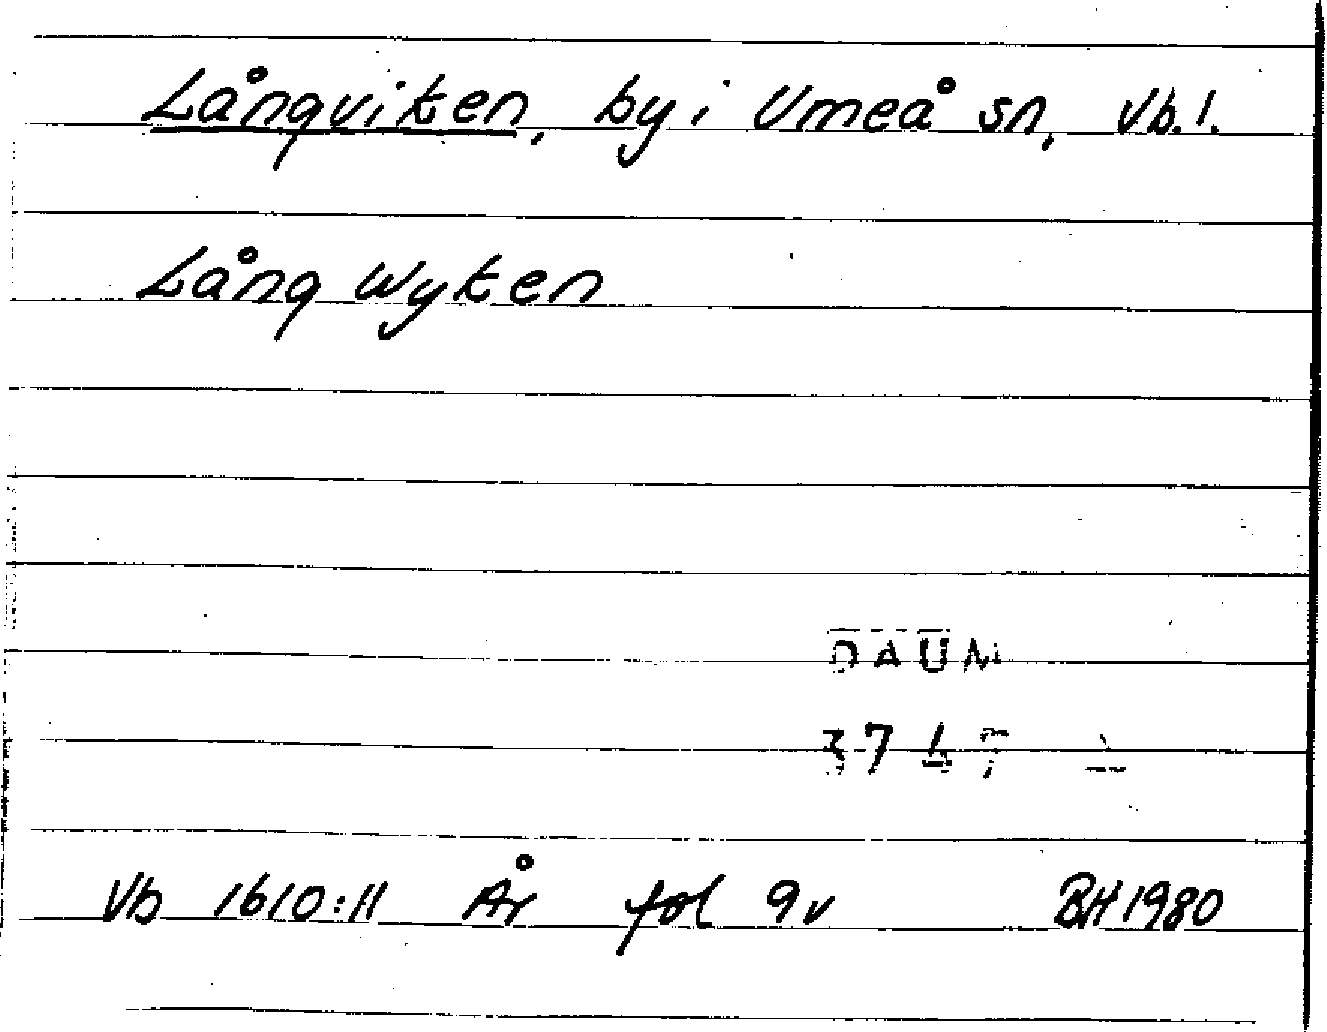 Långviken, by i Umeå sn, Vb. l.
Lång Wyken
DAUM
Vb 1610:11 År fol 9v BH 1980